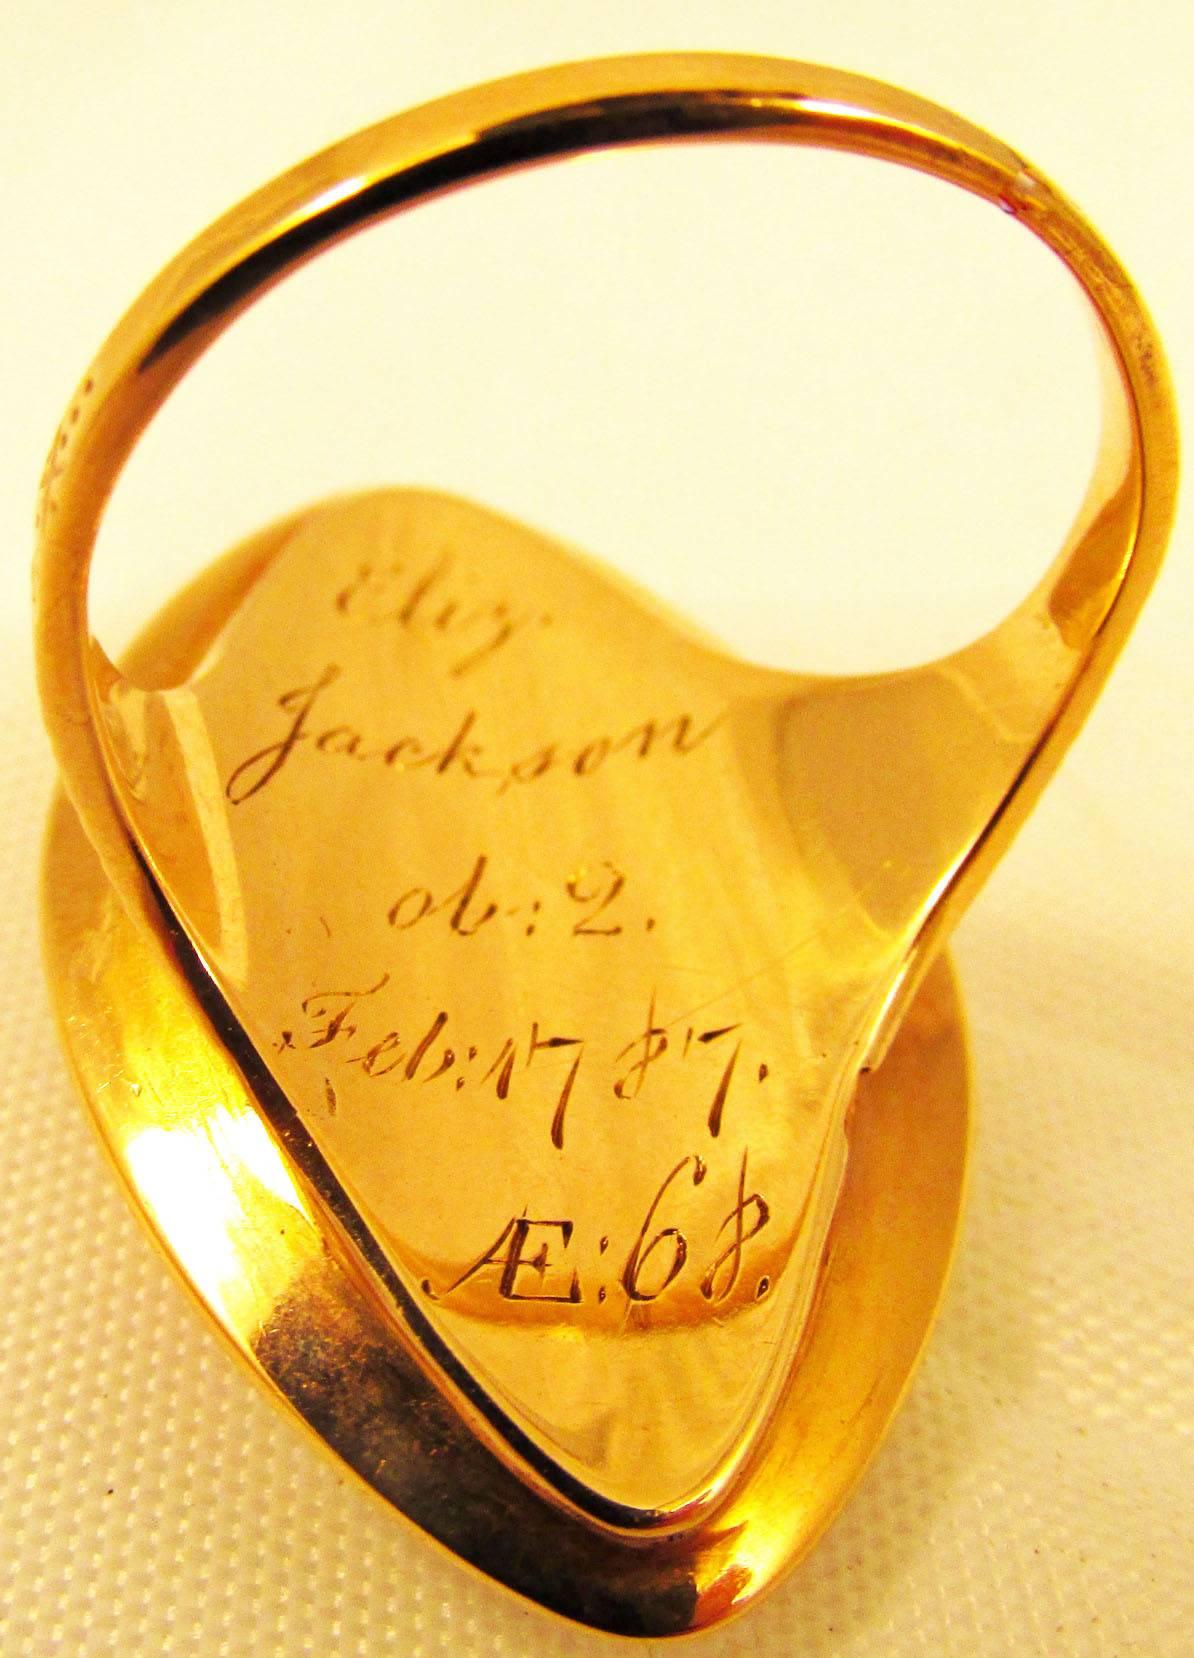 Eliz.
Jackson
ob: 2.
Feb: 1787.
Æ: 68.